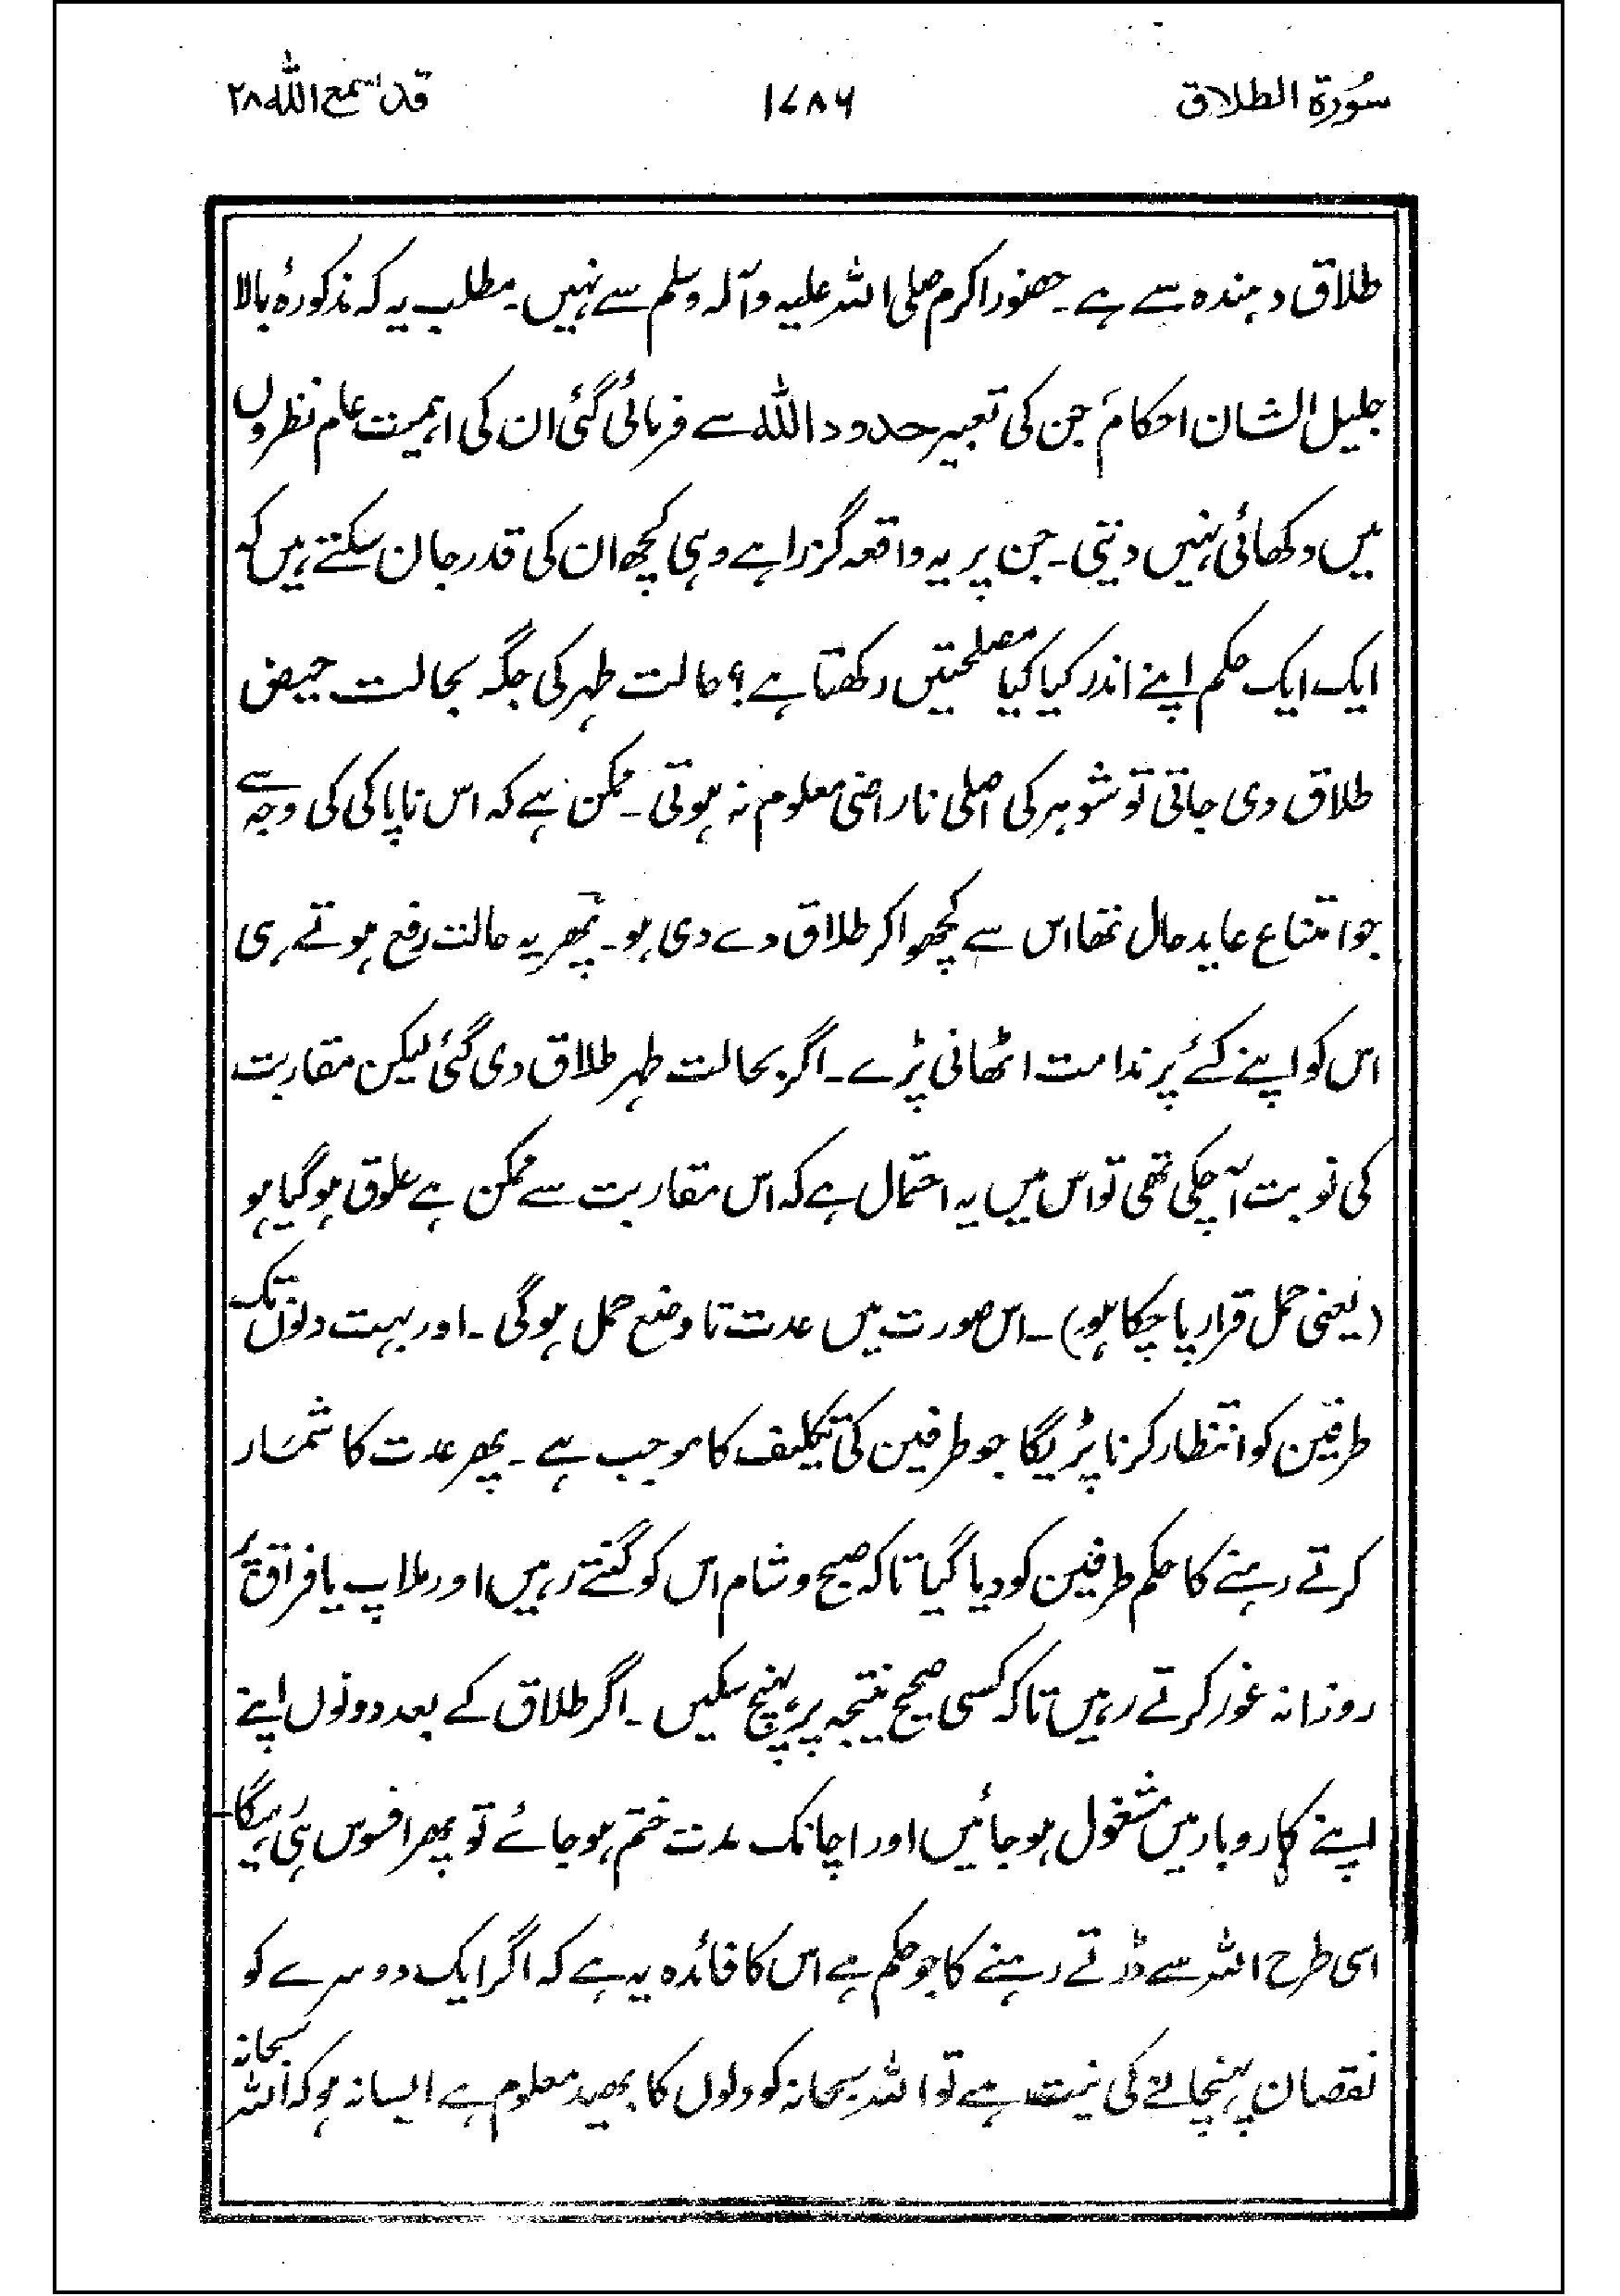 سُورة الطلاق ۱۷۸۶ قد سمع الله ۲۸
طلاق دہندہ سے ہے۔ حضور اکرم صلی اللہ علیہ وآلہ وسلم سے نہیں۔ مطلب یہ کہ مذکورۂ بالا
جلیل الشان احکام جن کی تعبیر حدود اللہ سے فرمائی گئی ان کی اہمیت عام نظروں
میں دکھائی نہیں دیتی۔ جن پر یہ واقعہ گزرا ہے وہی کچھ ان کی قدر جان سکتے ہیں کہ
ایک ایک حکم اپنے اندر کیا کیا مصلحتیں رکھتا ہے؟ حالت طہر کی جگہ بحالت حیض
طلاق دی جاتی تو شوہر کی اصلی ناراضی معلوم نہ ہوتی۔ ممکن ہے کہ اس ناپاکی کی وجہ سے
جو امتناع عاید حال تھا اس سے کچھوا کر طلاق دے دی ہو۔ پھر یہ حالت رفع ہوتے ہی
اس کو اپنے کئے پر ندامت اٹھانی پڑے۔ اگر بحالت طہر طلاق دی گئی لیکن مقاربت
کی نوبت آچکی تھی تو اس میں یہ احتمال ہے کہ اس مقاربت سے ممکن ہے علوق ہوگیا ہو
(یعنی حمل قرار پا چکا ہو)۔ اس صورت میں عدت تا وضع حمل ہوگی۔ اور بہت دنوں تک
طرفین کو انتظار کرنا پڑیگا جو طرفین کی تکلیف کا موجب ہے۔ پھر عدت کا شمار
کرتے رہنے کا حکم طرفین کو دیا گیا تاکہ صبح و شام اس کو گنتے رہیں اور ملاپ یا فراق پر
روزانہ غور کرتے رہیں تاکہ کسی صحیح نتیجہ پر پہنچ سکیں۔ اگر طلاق کے بعد دونوں اپنے
اپنے کاروبار میں مشغول ہوجائیں اور اچانک مدت ختم ہوجائے تو پھر افسوس ہی رہیگا۔
اسی طرح اللہ سے ڈرتے رہنے کا جو حکم ہے اس کا فائدہ یہ ہے کہ اگر ایک دوسرے کو
نقصان پہنچانے کی نیت ہے تو اللہ سبحانہ کو دلوں کا بھید معلوم ہے ایسا نہ ہو کہ اللہ سبحانہ